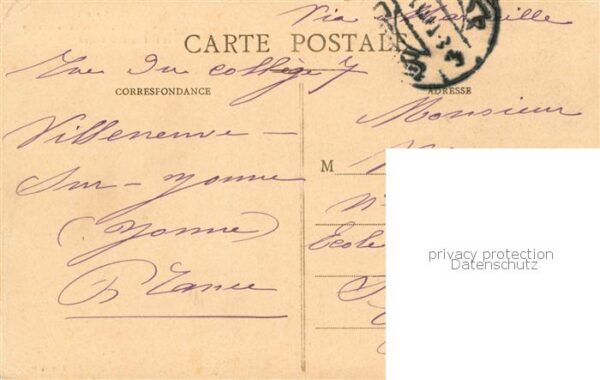 Via Marseille
CARTE POSTALE
Rue du collège 7
CORRESPONDANCE
ADRESSE
Villeneuve -
sur - yonne
(yonne)
France
Monsieur
M
N
Ecole
privacy protection
Datenschutz